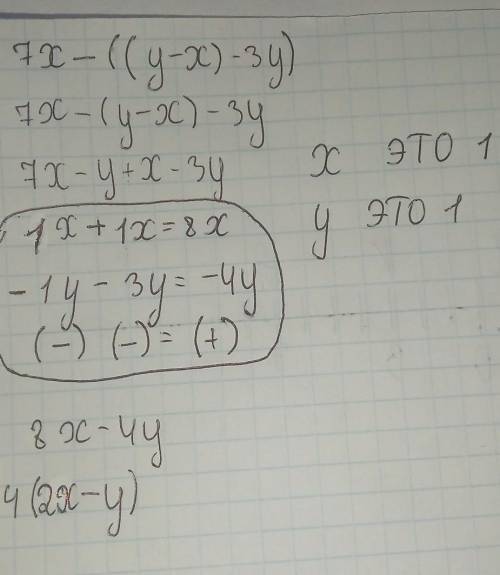 7x - ((y-x) - 3y)
7x - (y-x) - 3y
7x - y + x - 3y
x это 1
y это 1
1x + 1x = 8x
- 1y - 3y = -4y
(-) (-) = (+)
8x - 4y
4(2x-y)